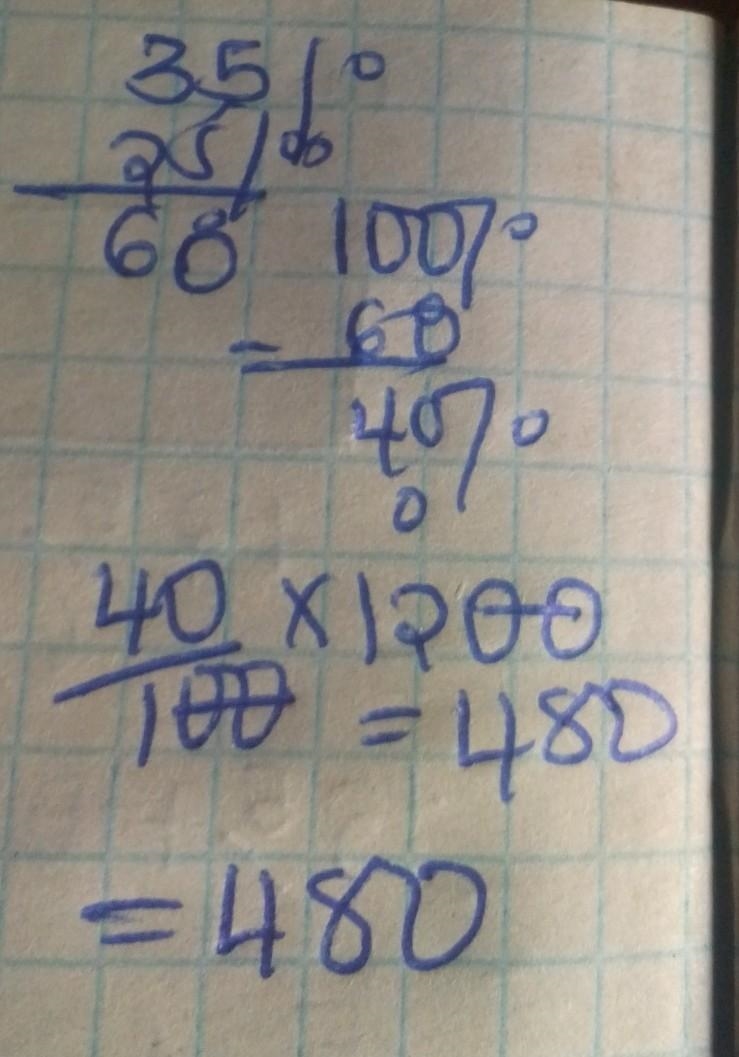 35%
25%
60
100%
= 60
40%
0
40 × 1200
100 = 480
= 480